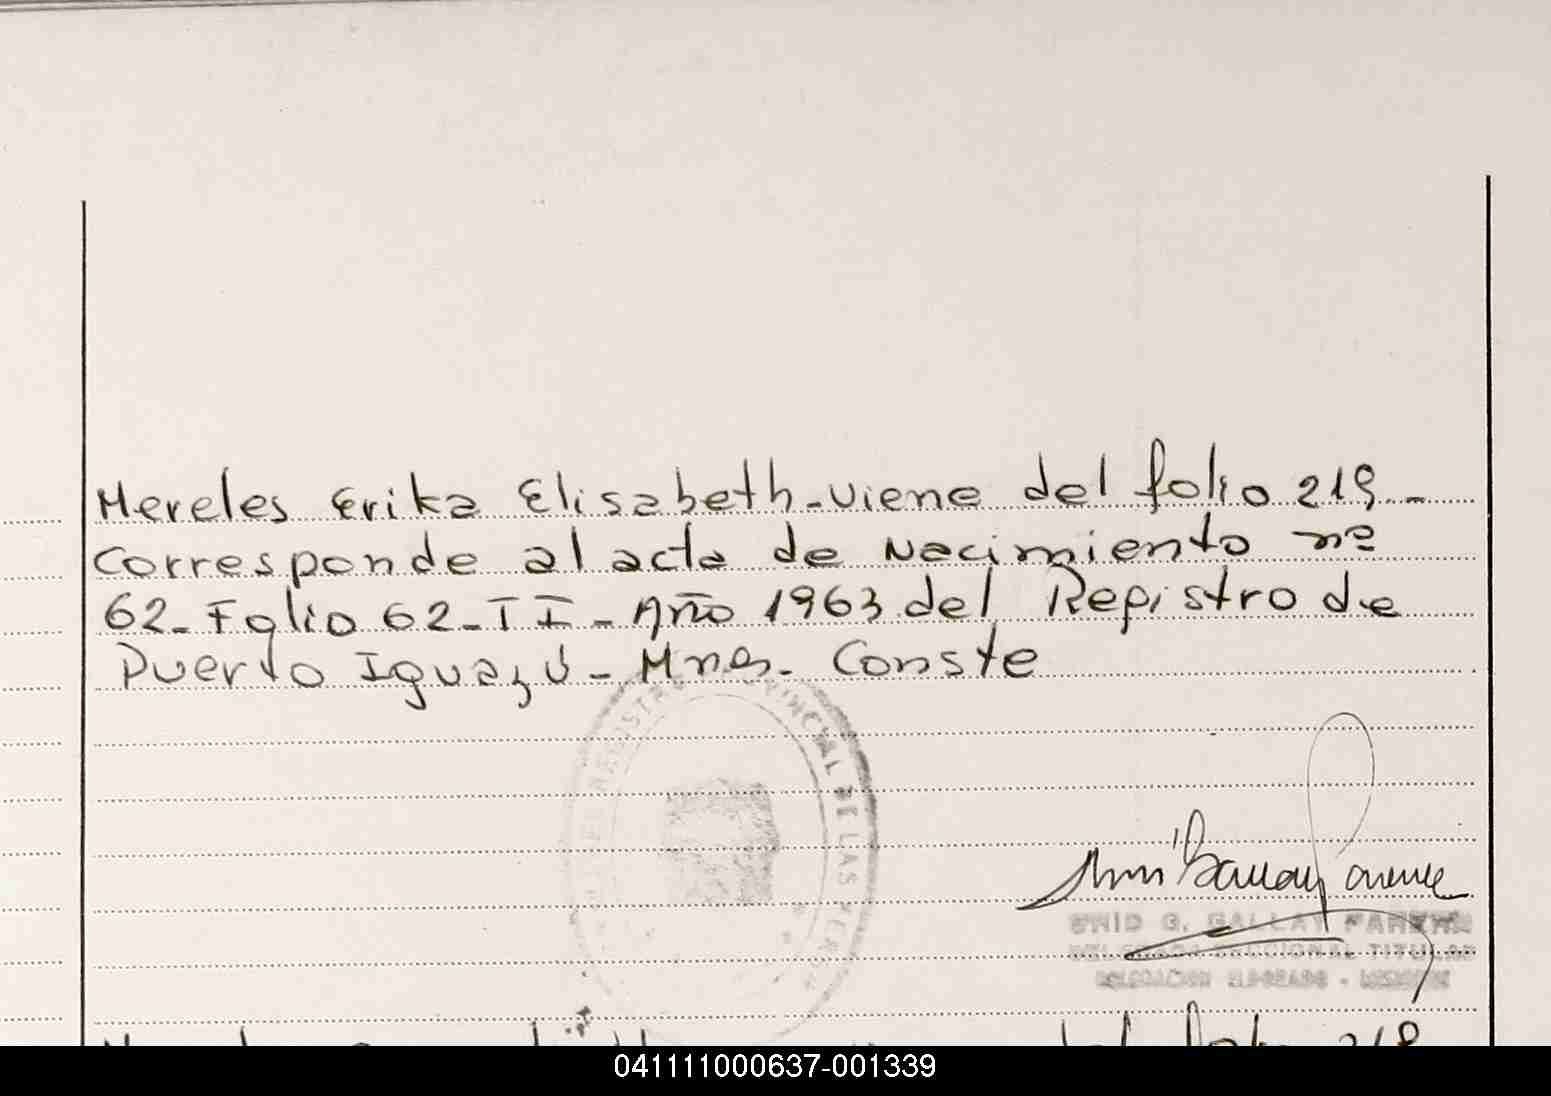 Mereles Erika Elisabeth-viene del folio 219.-
Corresponde al acta de Nacimiento nº
62-Folio 62-II-Año 1963 del Registro de
Puerto Iguazú-Mnes. Conste
REGISTRO PROVINCIAL DE LAS PERSONAS
G. GALLAY
DELEGADA SECCIONAL TITULAR
DELEGACION ELDORADO - MISIONES
del folio 218
041111000637-001339